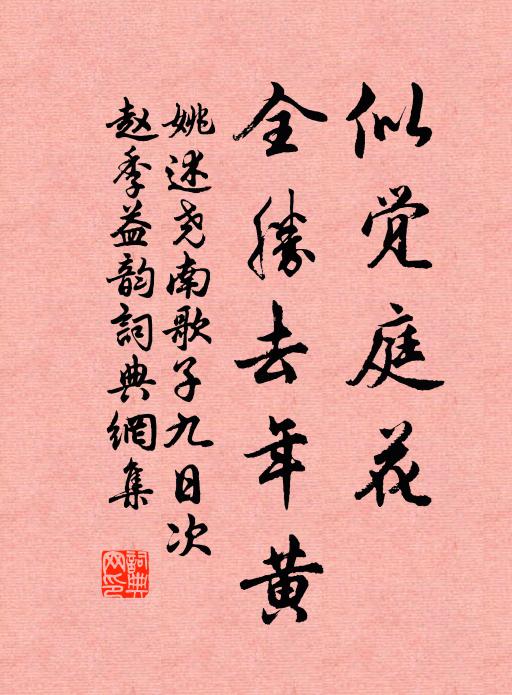 似觉庭花
全胜去年黄
姚述尧南歌子九日次
赵季益韵词典网集
詞典
网印